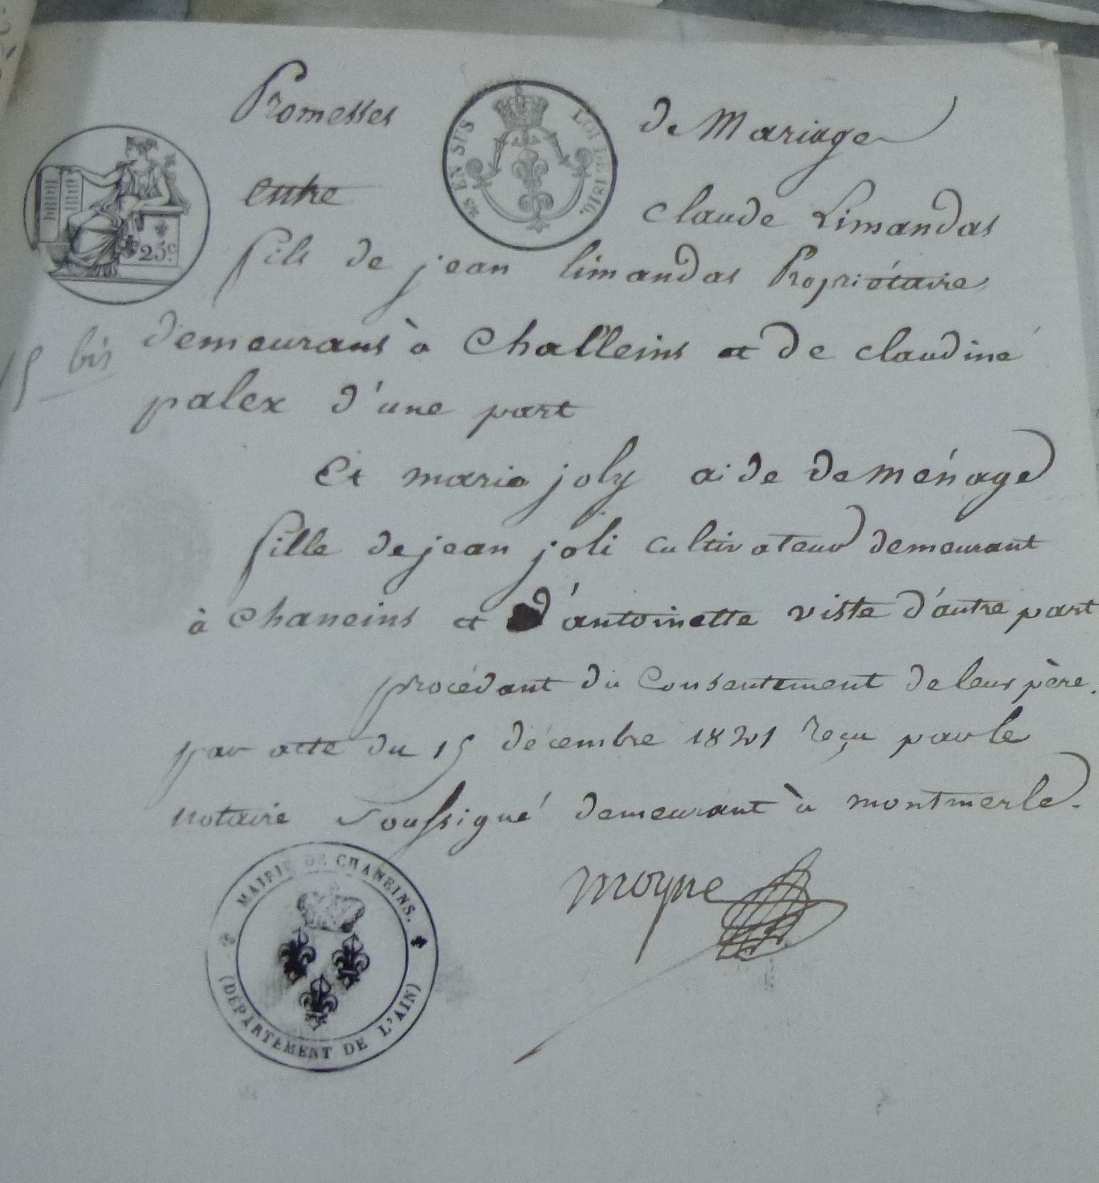 Promesses de Mariage
entre claude Limandas
fils de jean limandas Propriétaire
demeurans à Challeins et de claudine
palex d'une part
Et marie joly aide de ménage
fille de jean joli cultivateur demeurant
à Chaneins et d'antoinette viste d'autre part
procédant du Consentement de leur père.
par acte du 15 décembre 1821 reçu par le
notaire soussigné demeurant à montmerle.
moyne
bis
25c
EN SUS
LOI DE 1816.
MAIRIE DE CHANEINS.
(DÉPARTEMENT DE L'AIN)